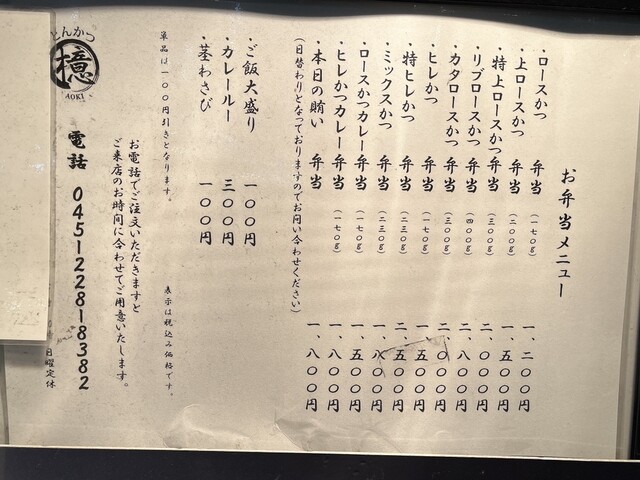 お弁当メニュー
・ロースかつ 弁当 (一七〇g) 一、二〇〇円
・上ロースかつ 弁当 (二〇〇g) 一、五〇〇円
・特上ロースかつ 弁当 (三〇〇g) 二、〇〇〇円
・リブロースかつ 弁当 (四〇〇g) 二、八〇〇円
・カタロースかつ 弁当 (三〇〇g) 二、〇〇〇円
・ヒレかつ 弁当 (一七〇g) 一、五〇〇円
・特ヒレかつ 弁当 (二三〇g) 二、五〇〇円
・ミックスかつ 弁当 (二三〇g) 一、八〇〇円
・ロースかつカレー 弁当 (一七〇g) 一、五〇〇円
・ヒレかつカレー 弁当 (一七〇g) 一、八〇〇円
・本日の賄い 弁当 一、八〇〇円
(日替わりとなっておりますのでお問い合わせください)
・ご飯大盛り 一〇〇円
・カレールー 三〇〇円
・茎わさび 一〇〇円
単品は一〇〇円引きとなります。 表示は税込み価格です。
お電話でご注文いただきますと
ご来店のお時間に合わせてご用意いたします。
電話 045-228-8382
とんかつ
檍
AOKI
日曜定休